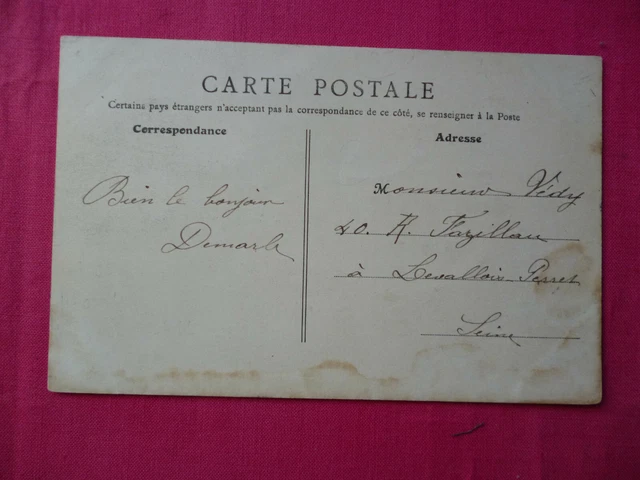 CARTE POSTALE
Certains pays étrangers n'acceptant pas la correspondance de ce côté, se renseigner à la Poste
Correspondance
Adresse
Bien le bonjour
Demarle
Monsieur Védy
40. R. Fazillau
à Levallois-Perret
Seine